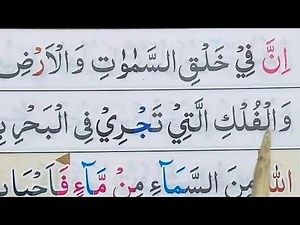 اِنَّ فِيْ خَلْقِ السَّمٰوٰتِ وَالْاَرْضِ
وَالْفُلْكِ الَّتِيْ تَجْرِيْ فِى الْبَحْرِ
اللّٰهُ مِنَ السَّمَآءِ مِنْ مَّآءٍ فَاَحْيَا